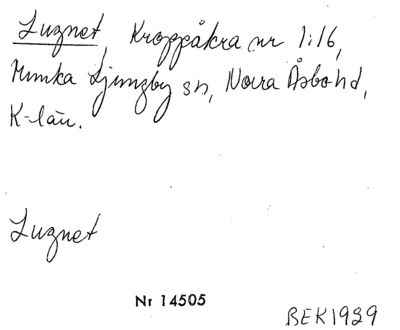 Lugnet, Kroppåkra nr 1:16,
Munka Ljungby sn, Norra Åsbo hd,
K-län.
Lugnet
Nr 14505
BEK1939